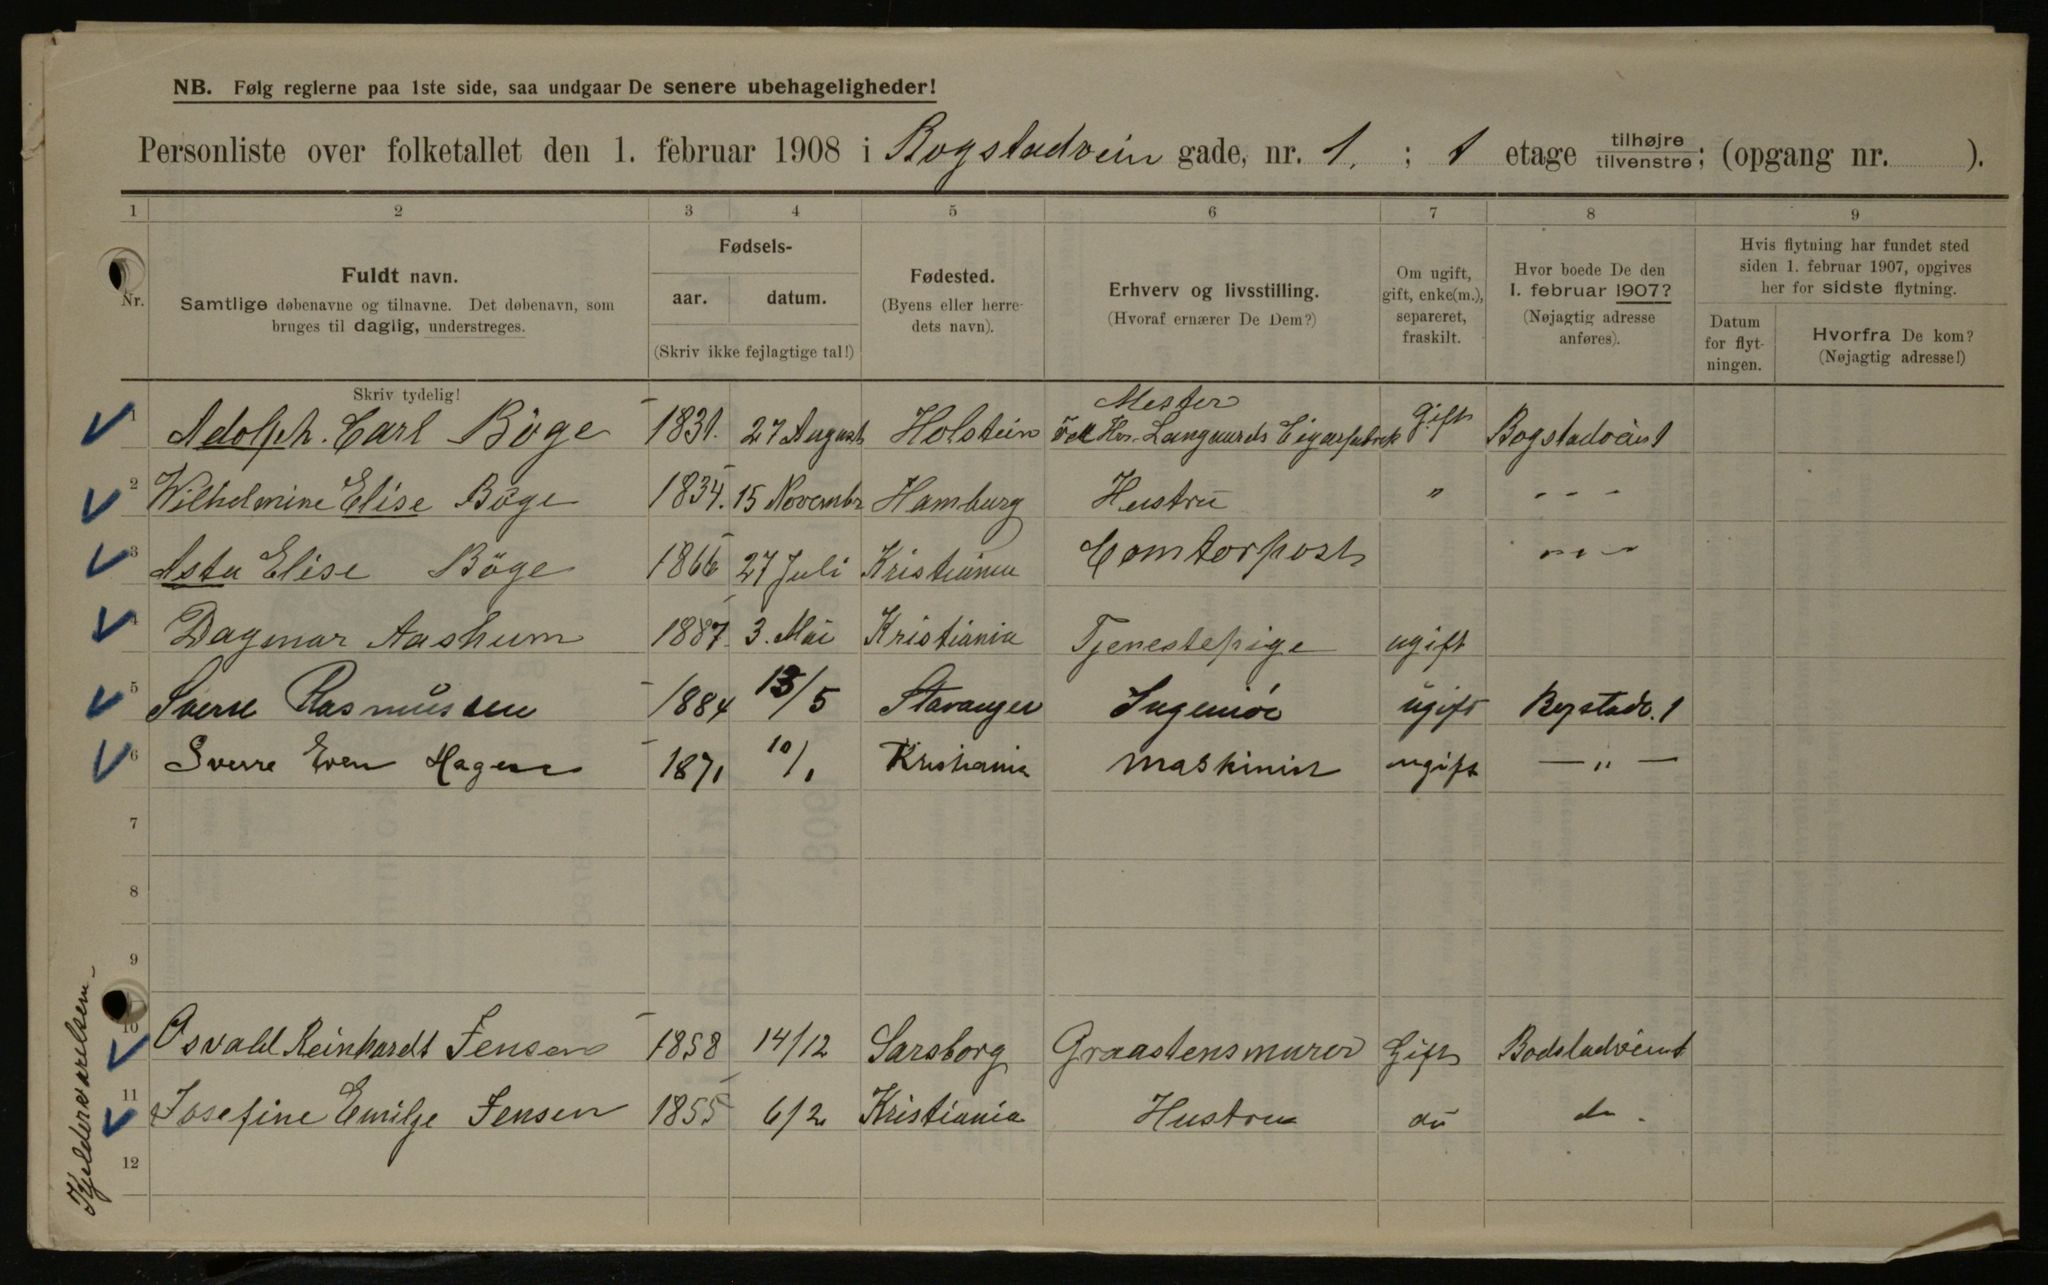 NB. Følg reglerne paa 1ste side, saa undgaar De senere ubehageligheder!
Personliste over folketallet den 1. februar 1908 i Bogstadvein gade, nr. 1. ; 1 etage tilhøjre tilvenstre; (opgang nr. ).
1 2 3 4 5 6 7 8 9
Nr.
Fuldt navn.
Samtlige døbenavne og tilnavne. Det døbenavn, som
bruges til daglig, understreges.
Fødsels-
aar. datum.
(Skriv ikke fejlagtige tal!)
Fødested.
(Byens eller herre-
dets navn).
Erhverv og livsstilling.
(Hvoraf ernærer De Dem?)
Om ugift,
gift, enke(m.),
separeret,
fraskilt.
Hvor boede De den
1. februar 1907?
(Nøjagtig adresse
anføres).
Hvis flytning har fundet sted
siden 1. februar 1907, opgives
her for sidste flytning.
Datum
for flyt-
ningen.
Hvorfra De kom?
(Nøjagtig adresse!)
Skriv tydelig!
Mester
1 Adolph. Carl Böge 1831. 27 August Holstein Hr. Langaards Cigarfabrik Gift Bogstadvein 1
2 Wilhelmine Elise Böge 1834. 15 Novembr Hamburg Hustru " - - -
3 Asta Elise Böge 1866 27 Juli Kristiania Comtorpost - - -
4 Dagmar Aashum 1887. 3. Mai Kristiania Tjenestepige ugift
5 Sverre Rasmussen 1884 13/5 Stavanger Ingeniør ugift Bogstadv. 1
6 Sverre Even Hagen 1871 10/1 Kristiania Maskinist ugift — " —
7
8
9
10 Osvald Reinhardt Jensen 1858 14/12 Sarsborg Graastensmurer Gift Bodstadvein 1
11 Josefine Emilje Jensen 1855 6/2 Kristiania Hustru do do.
12
Kjelderværelsem.